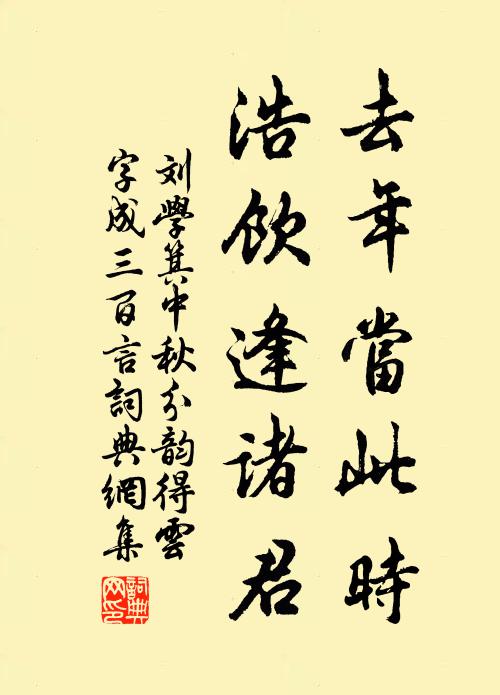 去年當此時
浩飲逢諸君
刘學箕中秋分韵得雲
字成三百言詞典網集
詞典網印